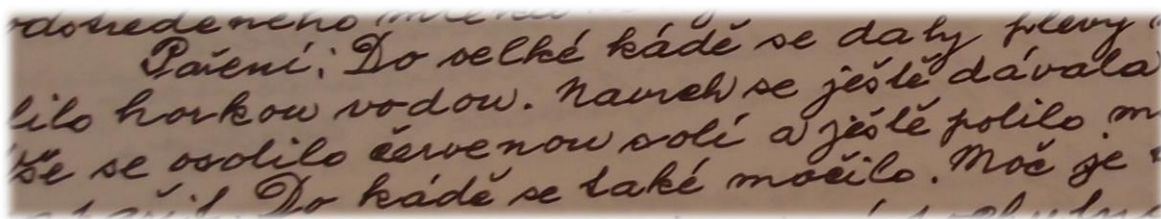 odstředěného
Paření: Do velké kádě se daly plevy
lilo horkou vodou. Navrch se ještě dávala
še se osolilo červenou solí a ještě polilo
Do kádě se také močilo. Moč je